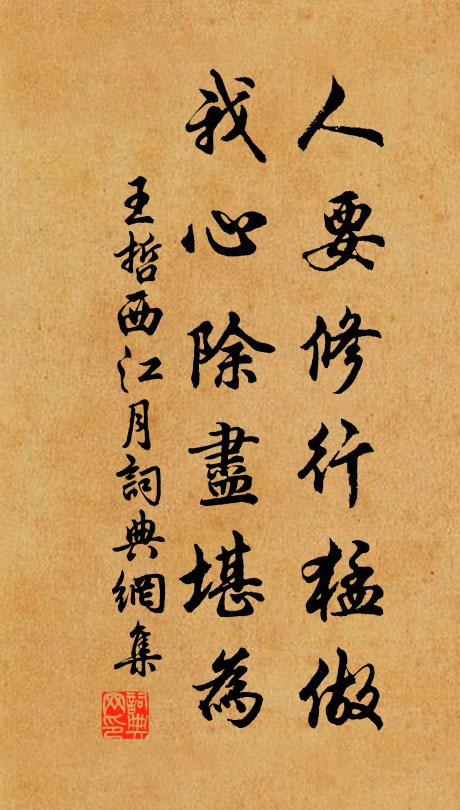 人要修行猛做
我心除盡堪為
王哲西江月詞典網集
詞典網印